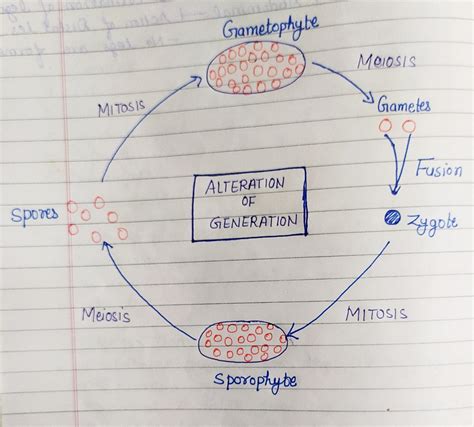 Gametophyte
MEIOSIS
MITOSIS
Gametes
Fusion
ALTERATION
OF
GENERATION
Spores
Zygote
Meiosis
MITOSIS
Sporophyte